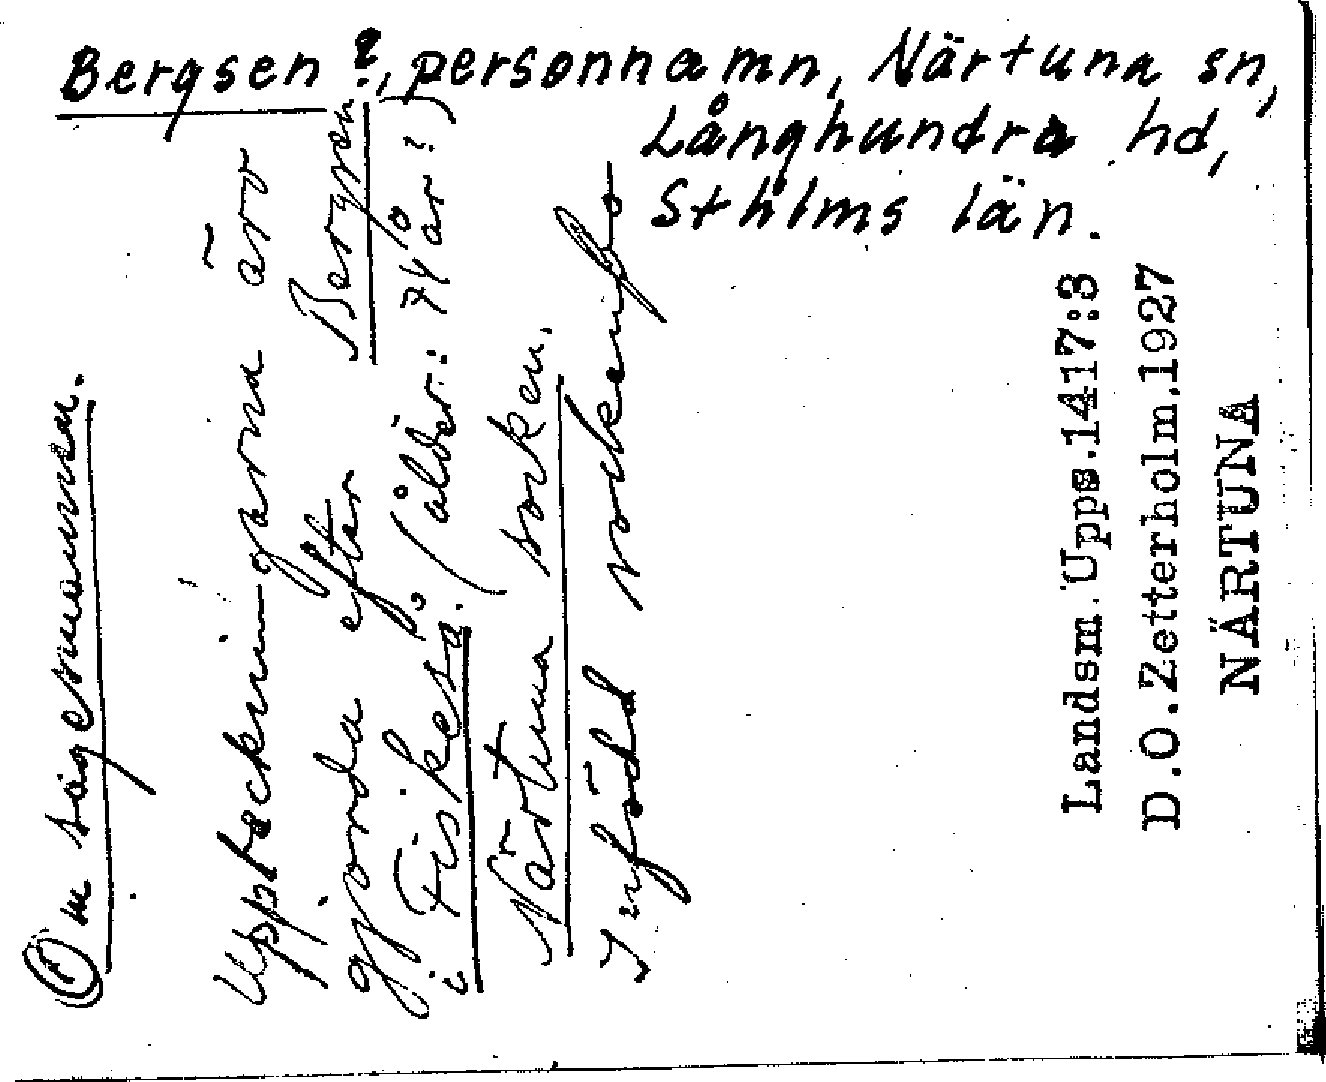 Bergsen?, personnamn, Närtuna sn,
Långhundra hd,
Sthlms län.
Om sagesmannen.
Uppteckningarna äro
gjorda efter Bergsen
i Fiskeså. (ålder: 74 år!)
Närtuna socken.
Infödd sockenbo
Landsm.Upps.1417:3
D.O.Zetterholm.1927
NÄRTUNA